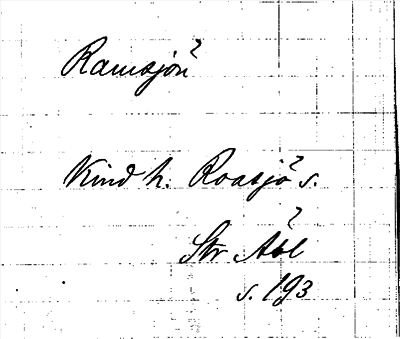 Ramsjön
Kind h. Roasjö s.
Str Äbl
s. 193